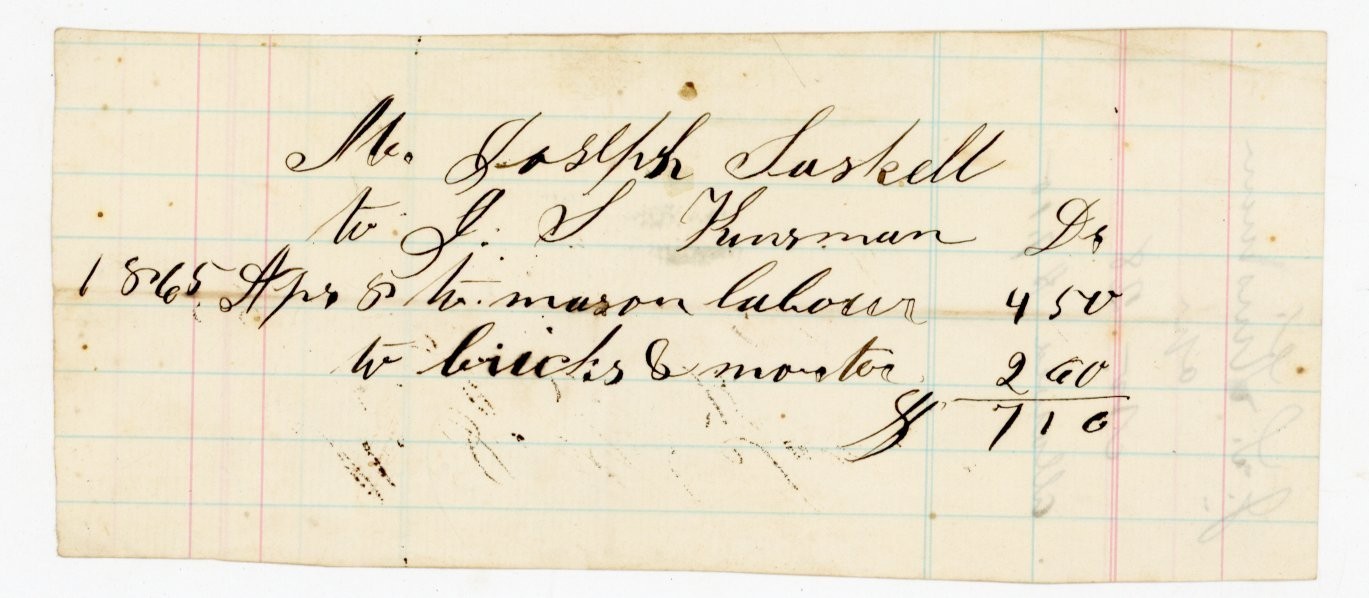 Mr. Joseph Gaskell
to J. S Kinsman Dr
1865 Apr 8 to mason labour 4 50
to bricks & mortar 2 60
$ 7 10